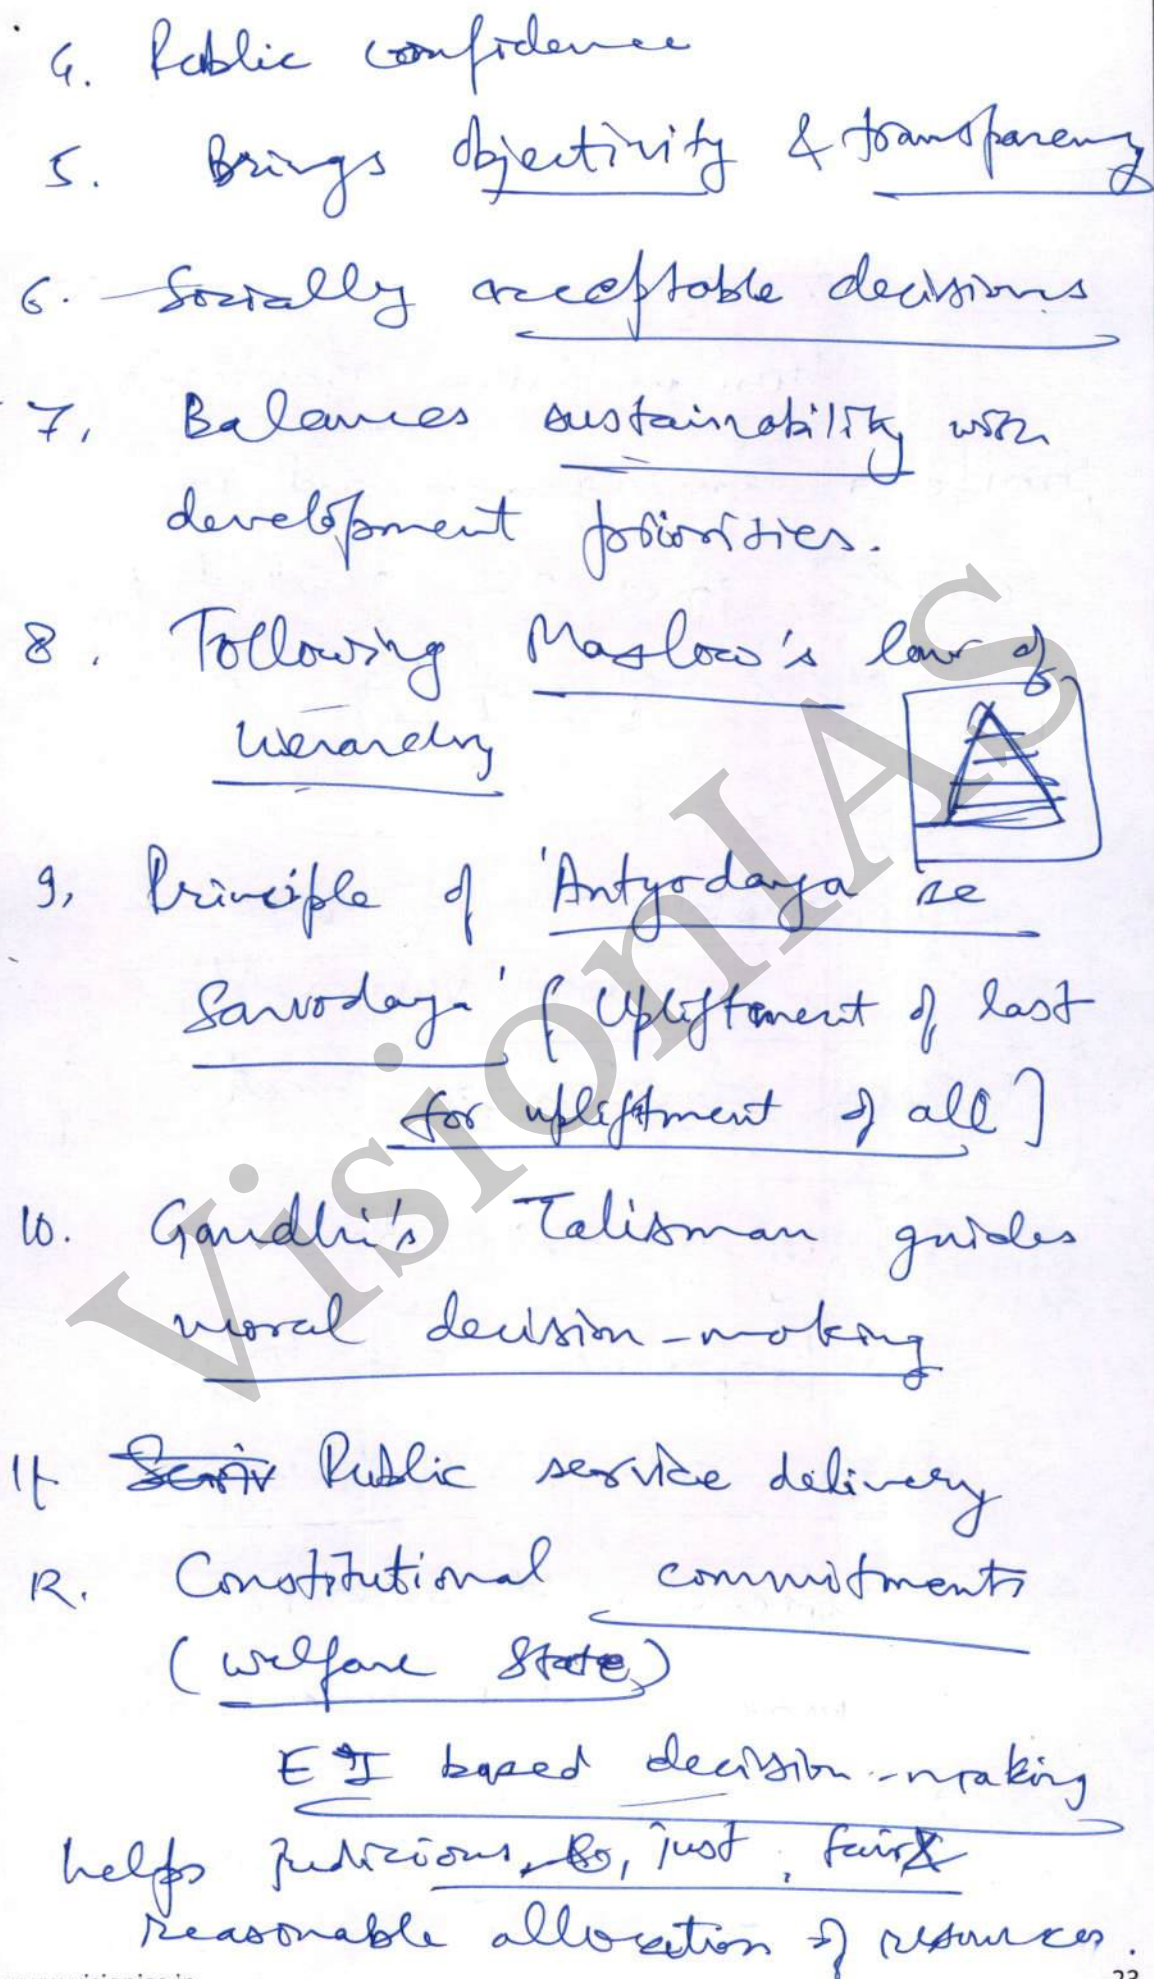 4. Public confidence
5. Brings objectivity & transparency
6. Socially acceptable decisions
7. Balances sustainability with
development priorities.
8. Following Maslow's law of
hierarchy
9. Principle of 'Antyodaya se
Sarvodaya' [Upliftment of last
for upliftment of all]
10. Gandhi's Talisman guides
moral decision-making
11. Public service delivery
12. Constitutional commitments
(welfare state)
EI based decision-making
helps judicious, just, fair &
reasonable allocation of resources.
23
VisionIAS